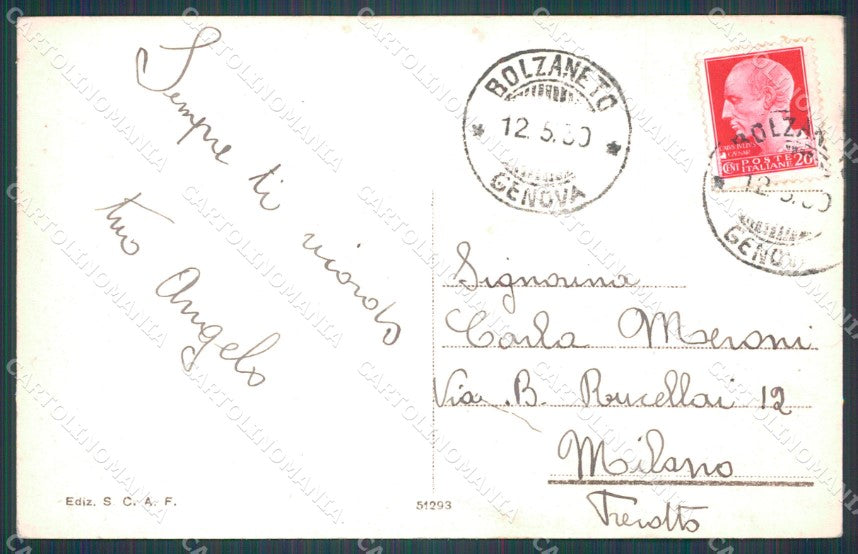 Sempre ti ricordo
tuo Angelo
BOLZANETO
12.5.30
GENOVA
CAIVS IVLIVS
CAESAR
CENT POSTE
ITALIANE 20
BOLZANE
12.5.30
GENOVA
Signorina
Carla Meroni
Via B. Rucellai 12
Milano
Trenotto
Ediz. S. C. A. F.
51293
CARTOLINOMANIA